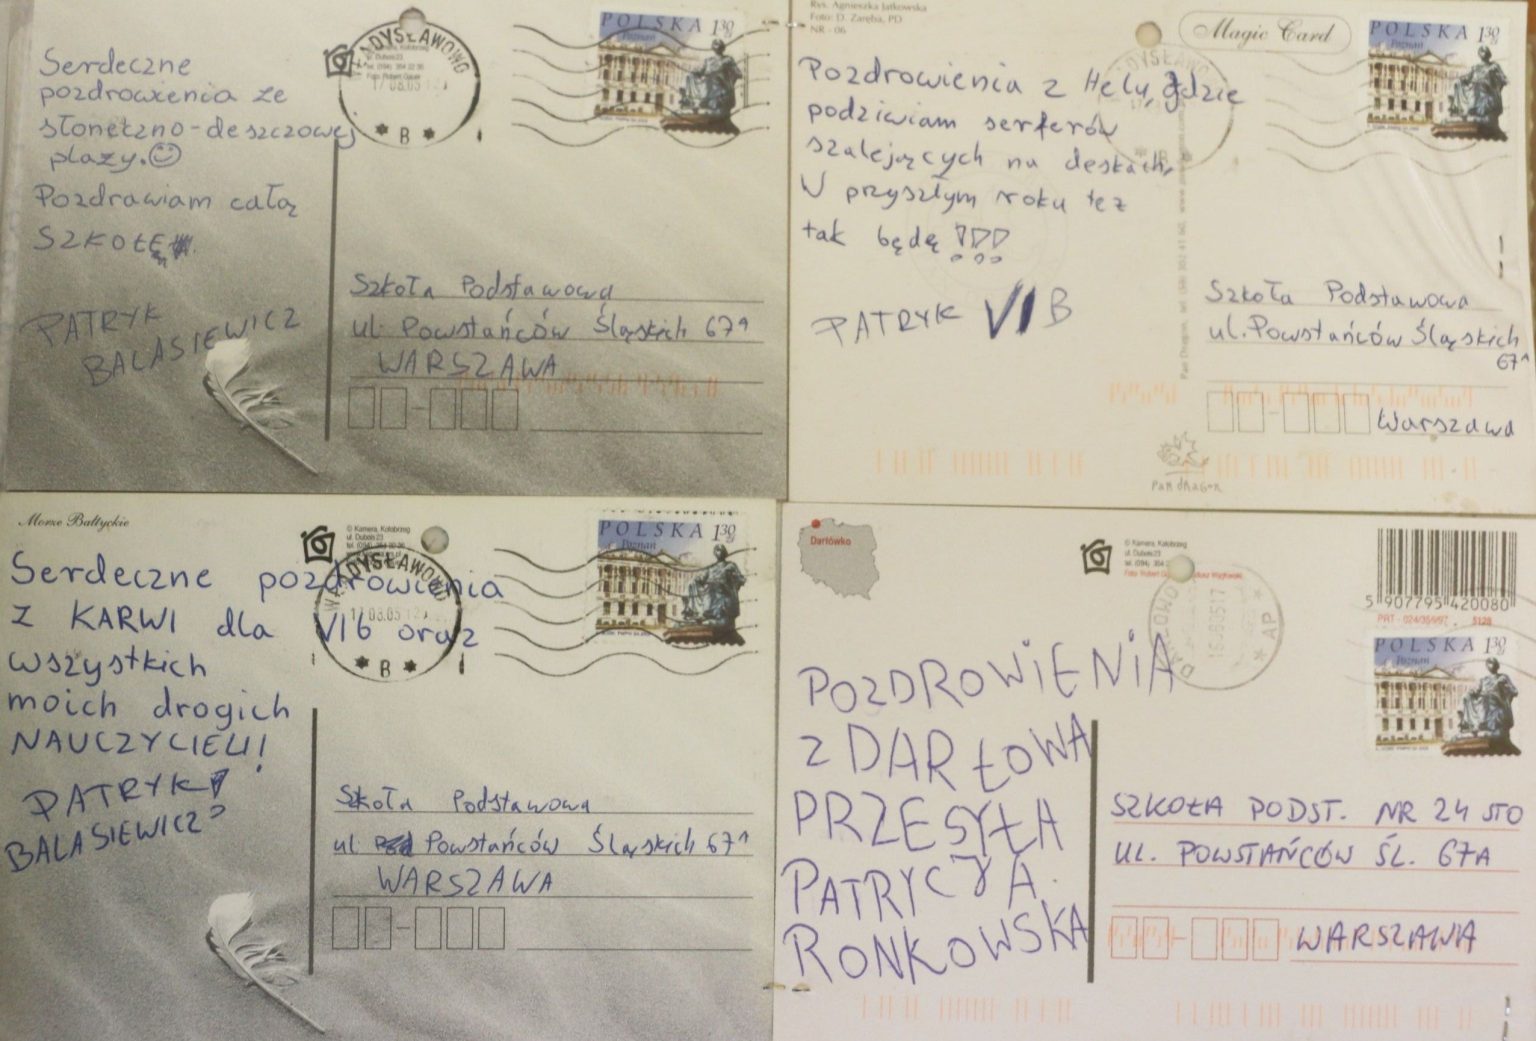 Serdeczne
pozdrowienia ze
słoneczno-deszczowej
plaży. ☺
Pozdrawiam całą
SZKOŁĘ
PATRYK
BALASIEWICZ
WŁADYSŁAWOWO
17 08.05
* B *
POLSKA 1³⁰ zł
Poznań
Szkoła Podstawowa
ul Powstańców Śląskich 67ᴬ
WARSZAWA
Rys. Agnieszka Jatkowska
Foto: D. Zaręba, PD
NR - 06
Magic Card
POLSKA 1³⁰ zł
Poznań
Pozdrowienia z Helu, gdzie
podziwiam serferów
szalejących na deskach,
W przyszłym roku też
tak będę !!!
PATRYK VI B
Szkoła Podstawowa
ul. Powstańców Śląskich
67ᴬ
Warszawa
Pan dRagon
Morze Bałtyckie
© Kamera, Kołobrzeg
ul. Dubois 23
Serdeczne pozdrowienia
z KARWI dla VI b oraz
wszystkich
moich drogich
NAUCZYCIELI!
PATRYK
BALASIEWICZ
WŁADYSŁAWOWO
17 08.05
* B *
POLSKA 1³⁰ zł
Poznań
Szkoła Podstawowa
ul Powstańców Śląskich 67ᴬ
WARSZAWA
Darłówko
© Kamera, Kołobrzeg
ul. Dubois 23
5 907795 420080
5128
POLSKA 1³⁰ zł
Poznań
POZDROWIENIA
Z DARŁOWA
PRZESYŁA
PATRYCJA
RONKOWSKA
SZKOŁA PODST. NR 24 STO
UL. POWSTAŃCÓW ŚL. 67A
WARSZAWA